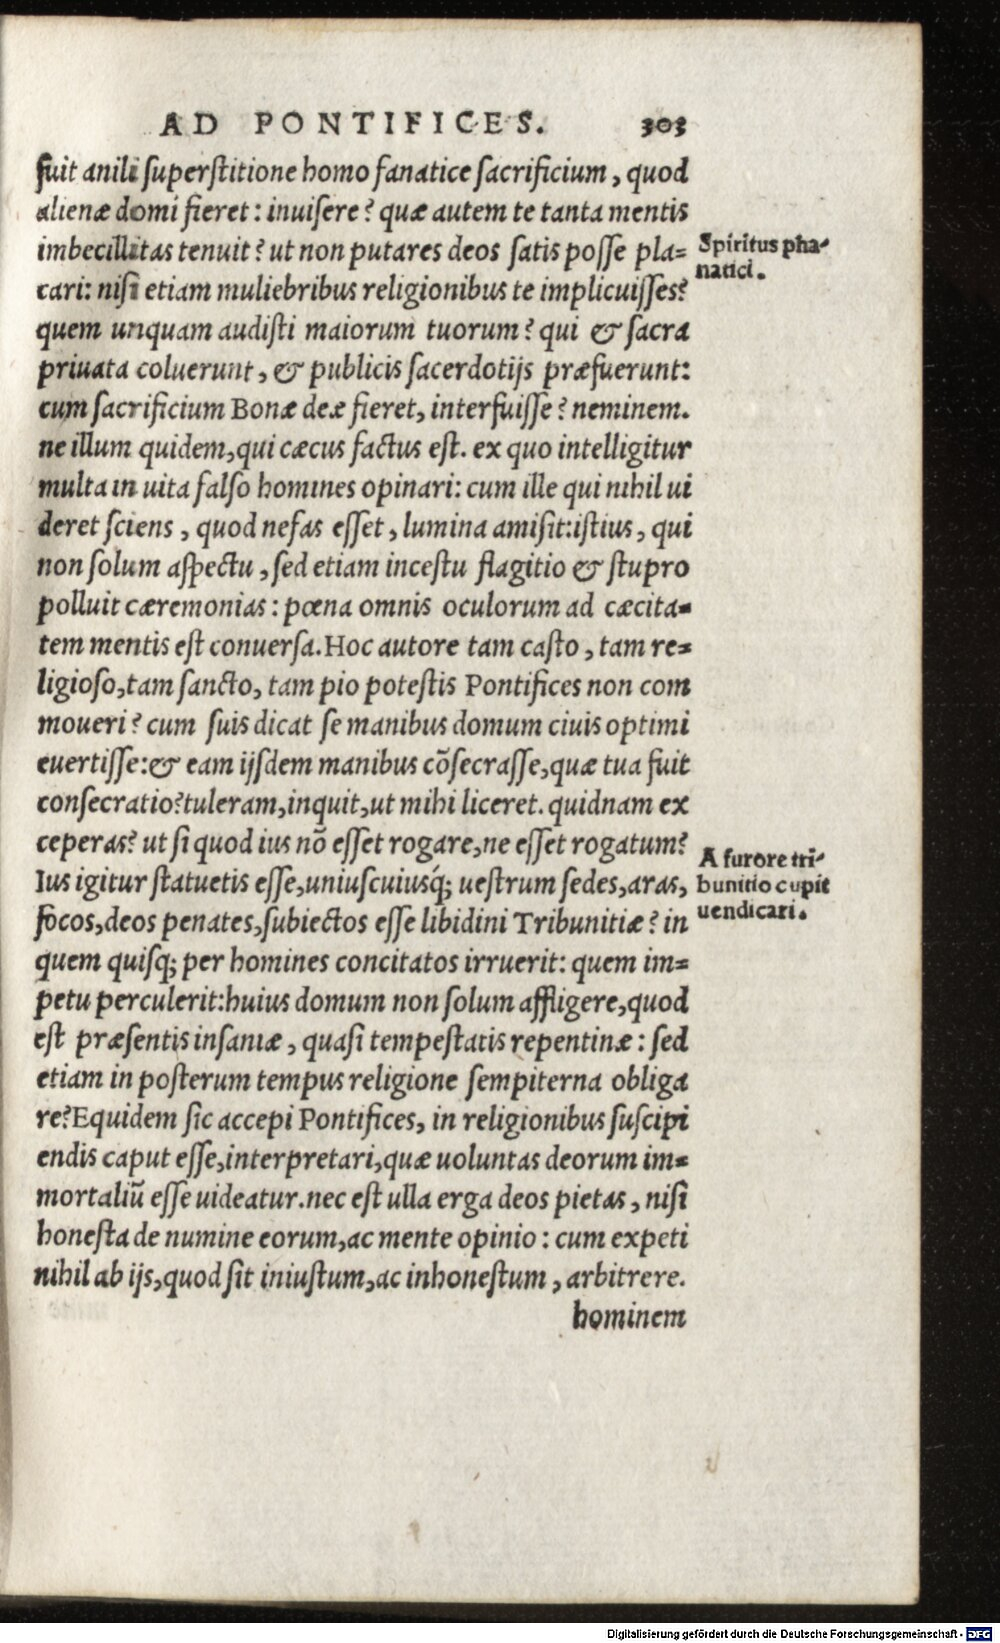 AD PONTIFICES. 303
fuit anili superstitione homo fanatice sacrificium, quod
alienæ domi fieret: inuisere? quæ autem te tanta mentis
imbecillitas tenuit? ut non putares deos satis posse pla=
cari: nisi etiam muliebribus religionibus te implicuisses?
quem unquam audisti maiorum tuorum? qui & sacra
priuata coluerunt, & publicis sacerdotijs præfuerunt:
cum sacrificium Bonæ deæ fieret, interfuisse? neminem.
ne illum quidem, qui cæcus factus est. ex quo intelligitur
multa in uita falso homines opinari: cum ille qui nihil ui
deret sciens, quod nefas esset, lumina amisit: istius, qui
non solum aspectu, sed etiam incestu flagitio & stupro
polluit cæremonias: pœna omnis oculorum ad cæcita=
tem mentis est conuersa. Hoc autore tam casto, tam re=
ligioso, tam sancto, tam pio potestis Pontifices non com
moueri? cum suis dicat se manibus domum ciuis optimi
euertisse: & eam ijsdem manibus cõsecrasse, quæ tua fuit
consecratio? tuleram, inquit, ut mihi liceret. quidnam ex
ceperas? ut si quod ius nõ esset rogare, ne esset rogatum?
Ius igitur statuetis esse, uniuscuiusq́; uestrum sedes, aras,
focos, deos penates, subiectos esse libidini Tribunitiæ? in
quem quisq; per homines concitatos irruerit: quem im=
petu perculerit: huius domum non solum affligere, quod
est præsentis insaniæ, quasi tempestatis repentinæ: sed
etiam in posterum tempus religione sempiterna obliga
re? Equidem sic accepi Pontifices, in religionibus suscipi
endis caput esse, interpretari, quæ uoluntas deorum im=
mortaliũ esse uideatur. nec est ulla erga deos pietas, nisi
honesta de numine eorum, ac mente opinio: cum expeti
nihil ab ijs, quod sit iniustum, ac inhonestum, arbitrere.
hominem
Spiritus pha-
natici.
A furore tri-
bunitio cupit
uendicari.
Digitalisierung gefördert durch die Deutsche Forschungsgemeinschaft - DFG